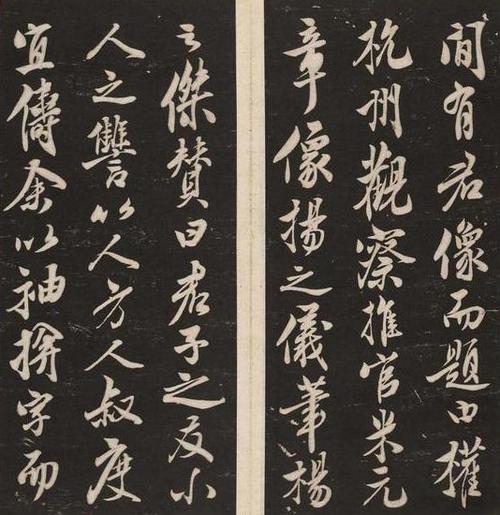 間有君像而題曰權
杭州觀察推官米元
章像揚之儀華楊
之傑賛曰君子之友小
人之讐以人方人叔度
宜儔余以袖揜字而